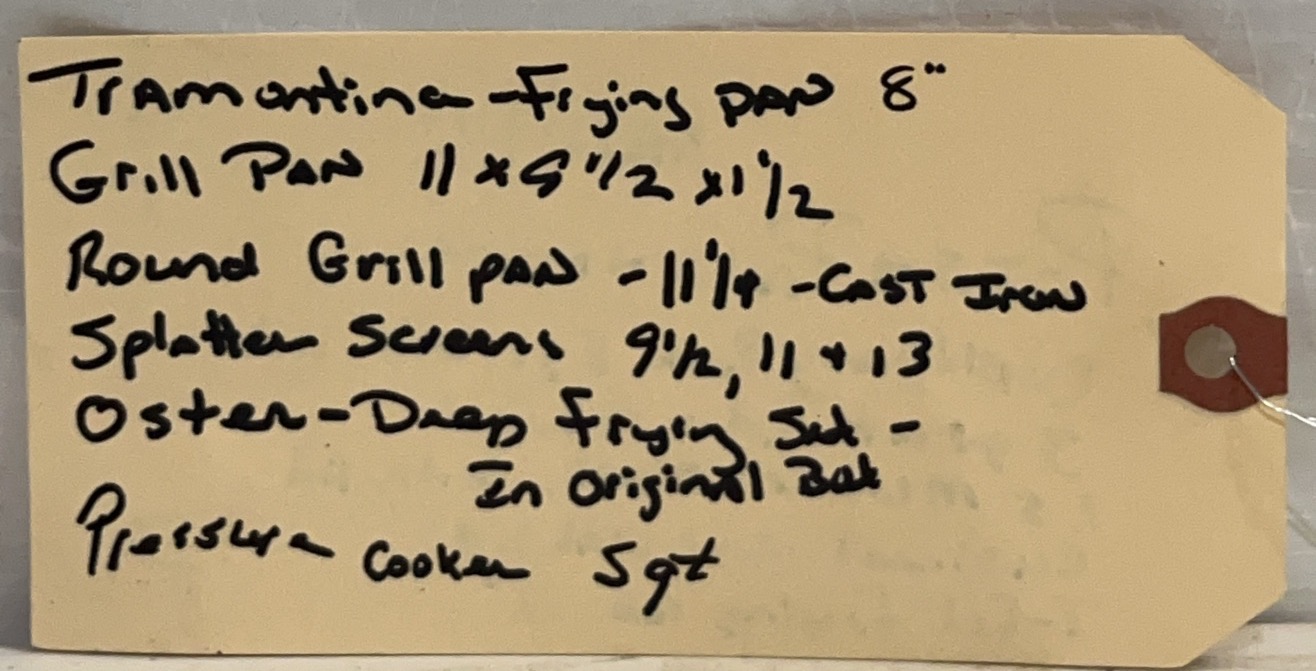 Tramontina - Frying PAN 8"
Grill PAN 11 x 9 1/2 x 1 1/2
Round Grill PAN - 11 1/4 - CAST Iron
Splatter Screens 9 1/2, 11 + 13
Oster - Deep Frying Set -
In Original Box
Pressure Cooker 5qt